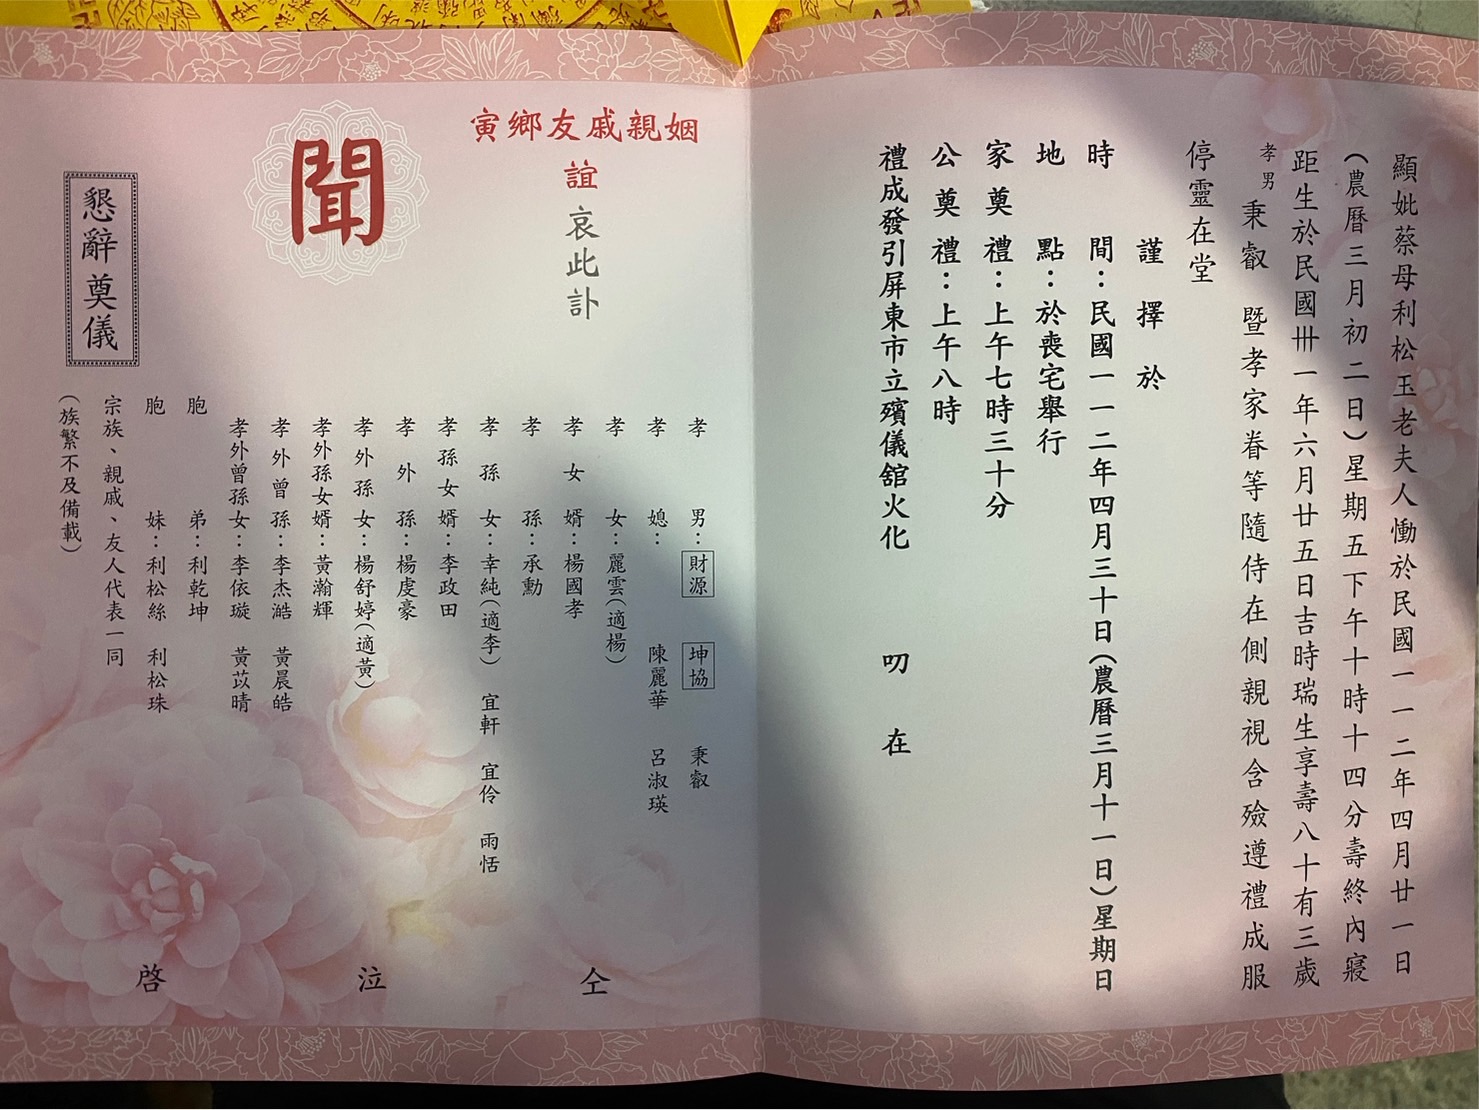 顯妣蔡母利松玉老夫人慟於民國一一二年四月廿一日
(農曆三月初二日)星期五下午十時十四分壽終內寢
距生於民國卅一年六月廿五日吉時瑞生享壽八十有三歲
孝男秉叡 暨孝家眷等隨侍在側親視含殮遵禮成服
停靈在堂
謹擇於
時間：民國一一二年四月三十日(農曆三月十一日)星期日
地點：於喪宅舉行
家奠禮：上午七時三十分
公奠禮：上午八時
禮成發引屏東市立殯儀舘火化 叨在
姻親戚友鄉寅
誼哀此訃
聞
孝男：財源 坤協 秉叡
孝媳： 陳麗華 呂淑瑛
孝女：麗雲(適楊)
孝女婿：楊國孝
孝孫：承勳
孝孫女：幸純(適李) 宜軒 宜伶 雨恬
孝孫女婿：李政田
孝外孫：楊虔豪
孝外孫女：楊舒婷(適黃)
孝外孫女婿：黃瀚輝
孝外曾孫：李杰澔 黃晨皓
孝外曾孫女：李依璇 黃苡晴
胞弟：利乾坤
胞妹：利松絲 利松珠
宗族、親戚、友人代表一同
(族繁不及備載)
仝泣啓
懇辭奠儀